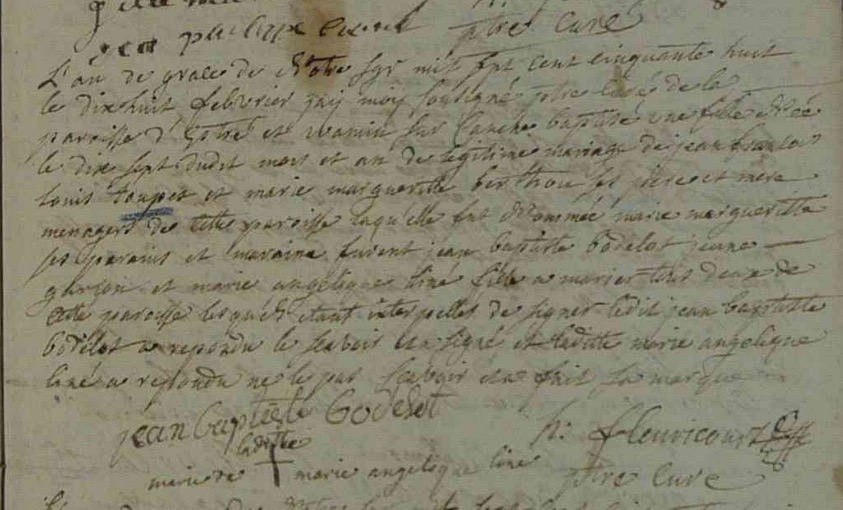 fille
jean philippe ptre Curé
L'an de grace de Notre sgr mil sept cent cinquante huit
le dix huit febvrier jay moy sousigné ptre curé de la
paroisse d'Estrée et wamin sur Canche baptisé une fille Née
le dix sept dudit mois et an de legitime mariage de jean francois
louis toupet et marie margueritte berthou ses pere et mere
menagers de cette paroisse laquelle fut Nommée marie margueritte
ses parains et maraine furent jean baptiste bodelot jeune
garson et marie angelique liné fille a marier tous deux de
cette paroisse lesquels etant interpelles de signer ledit jean baptiste
bodelot a repondu le scavoir et a signé et laditte marie angelique
liné a repondu ne le pas scavoir et a fait sa marque
jean baptiste bodelot
h. fleuricourt
laditte
marie de marie angelique liné
ptre Curé